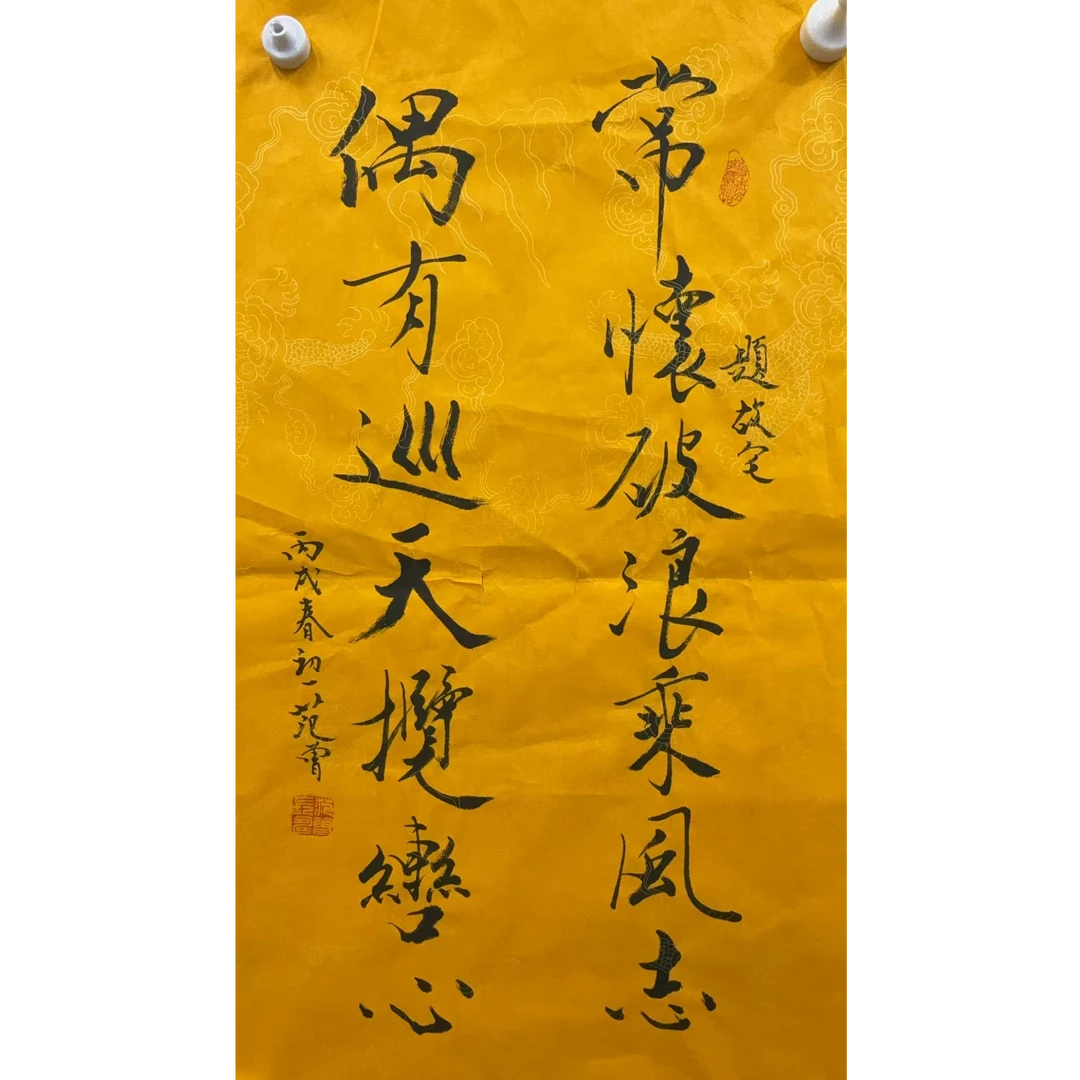 題故宅
常懷破浪乘風志
偶有巡天攬轡心
丙戌春初一范曾